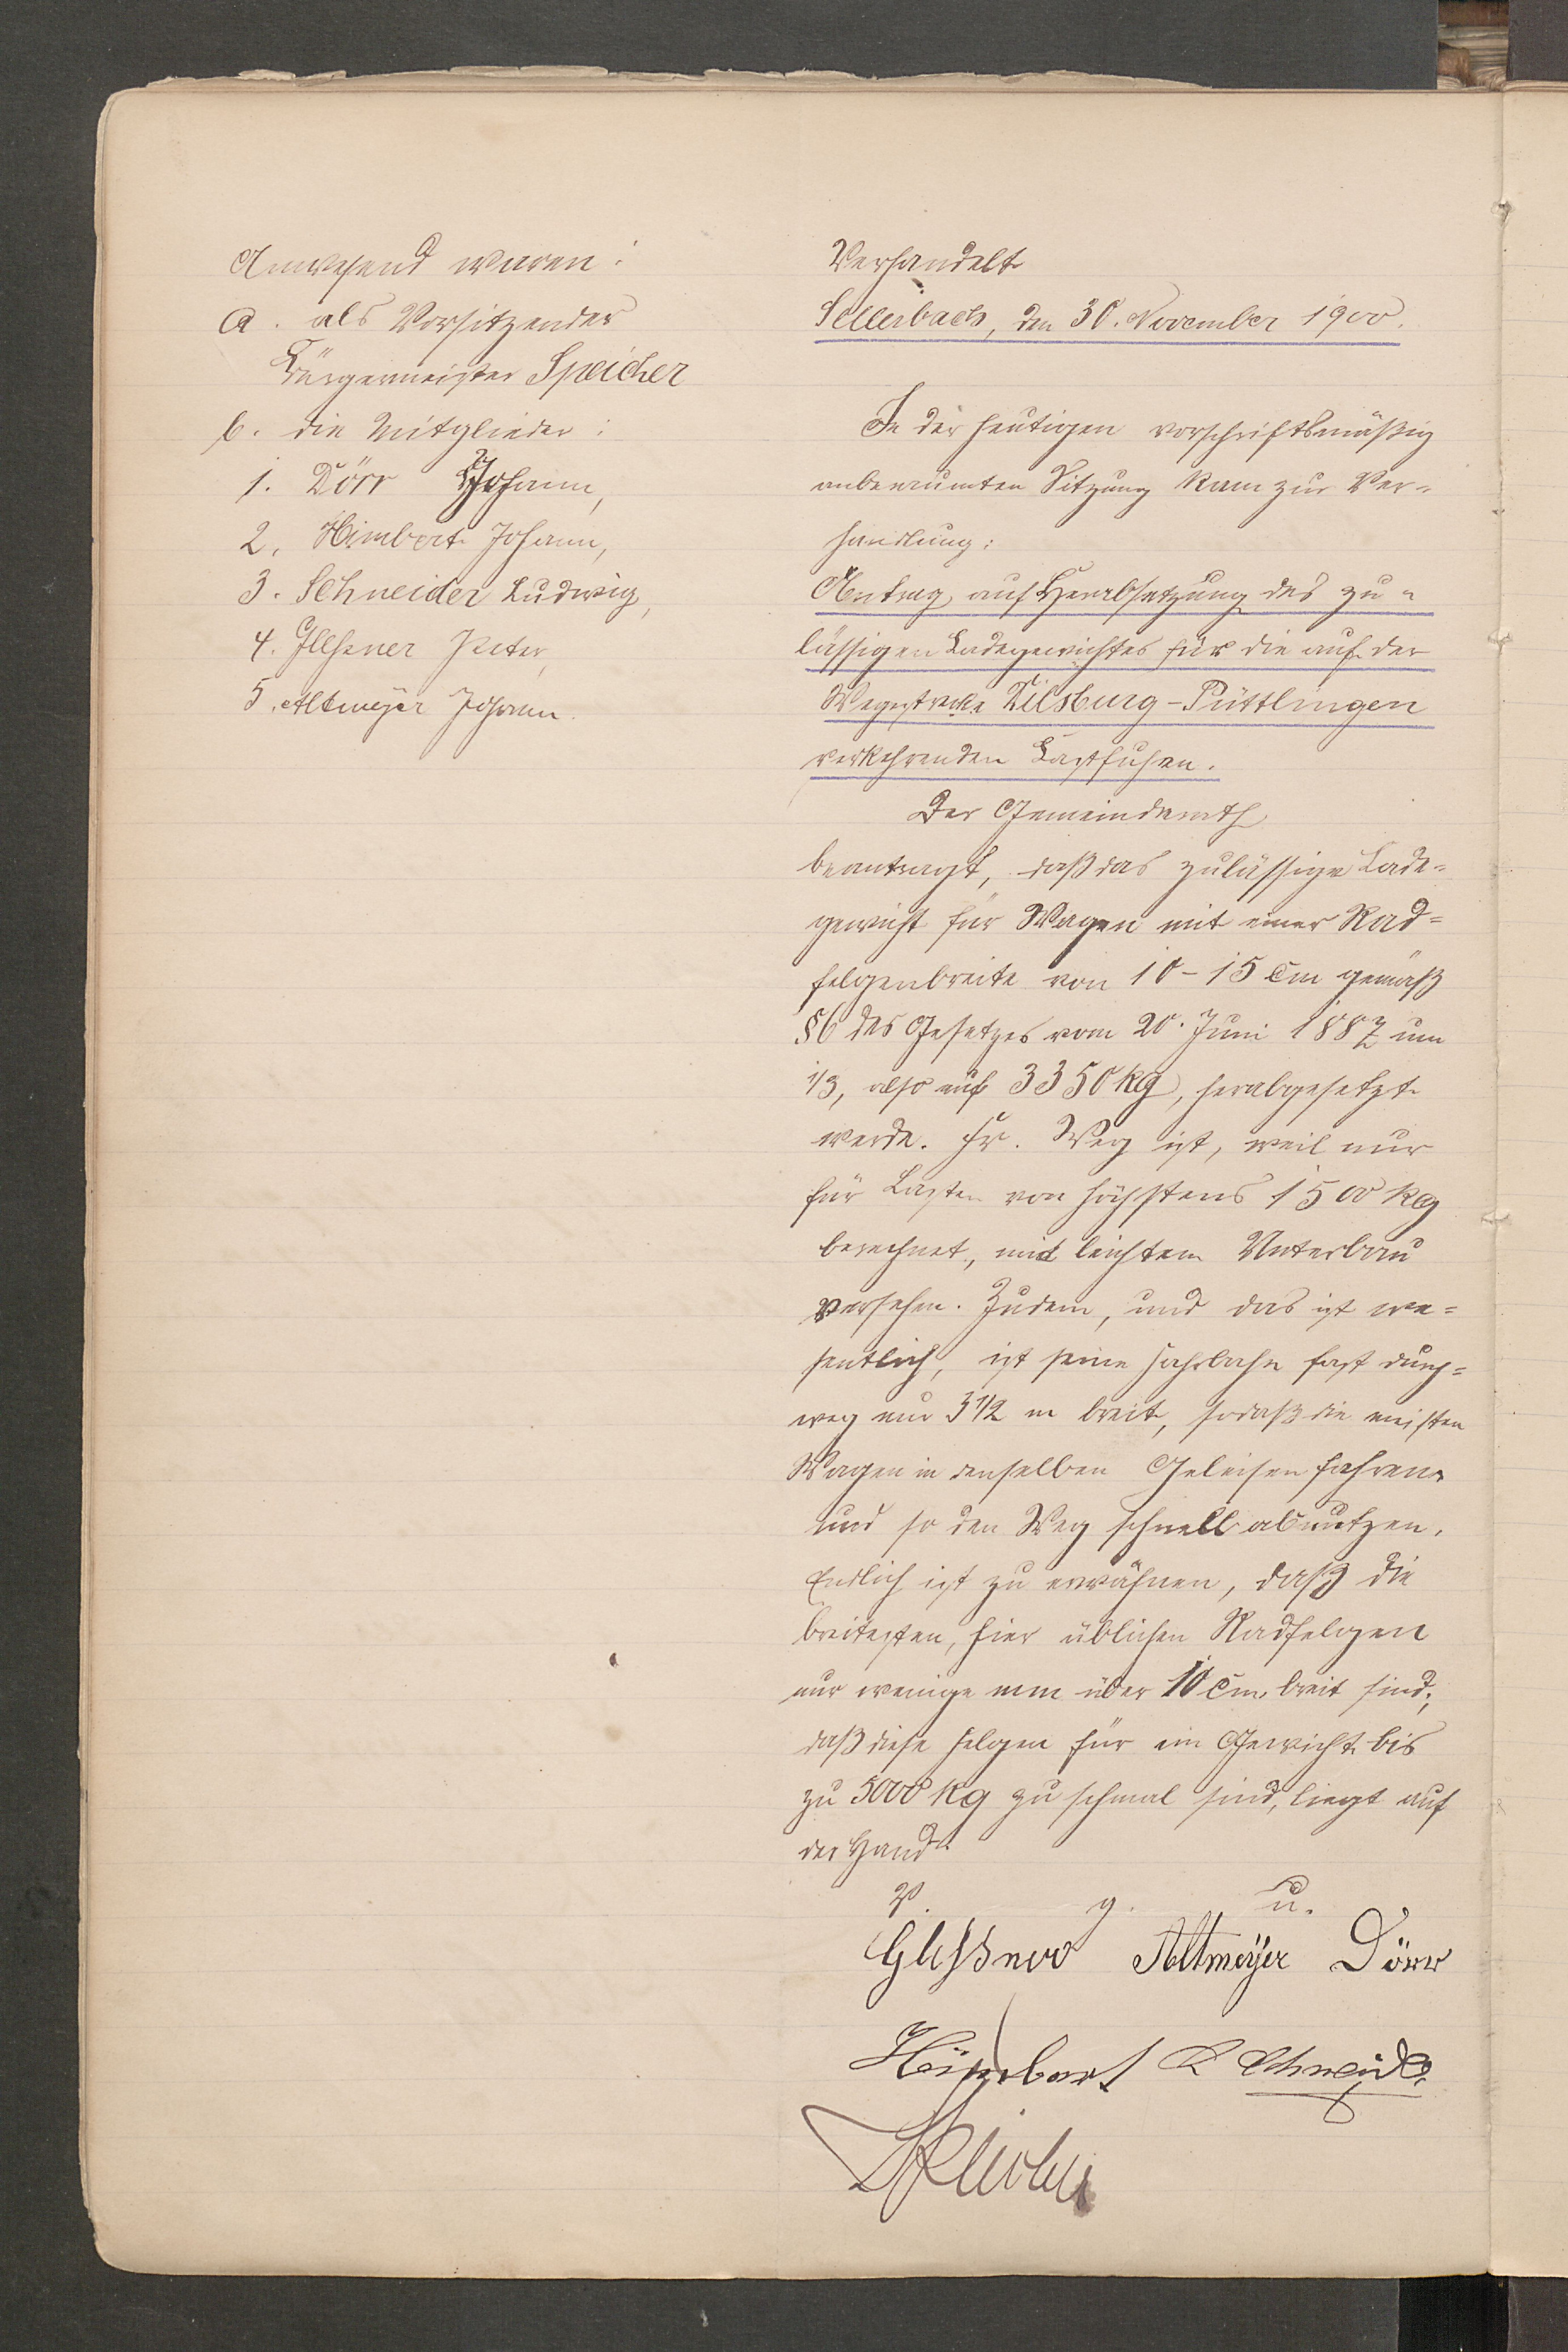 Anwesend waren:
a. als Vorsitzender
Bürgermeister Speicher
b. die Mitglieder:
1. Dörr Johann,
2. Himbert Johann,
3. Schneider Ludwig,
4. Glessner Peter,
5. Altmeyer Johann.
Verhandelt
Sellerbach, den 30. November 1900.
In der heutigen vorschriftsmäßig
anberaumten Sitzung kam zur Ver-
handlung:
Antrag auf Herabsetzung des zu-
lässigen Ladegewichtes für die auf der
Wegestrecke Dilsburg-Püttlingen
verkehrenden Lastfuhren.
Der Gemeinderath
beantragt, daß das zulässige Lade-
gewicht für Wagen mit einer Rad-
felgenbreite von 10-15 cm gemäß
§6 des Gesetzes vom 20. Juni 1887 um
1/3, also auf 3350 kg, herabgesetzt
werde. Fr. Weg ist, weil nur
für Lasten von höchstens 1500 kg
berechnet, mit leichtem Unterbau
versehen. Zudem, und das ist we-
sentlich, ist seine Fahrbahn fast durch-
weg nur 3 1/2 m breit, sodaß die meisten
Wagen in denselben Geleisen fahren
und so den Weg schnell abnutzen.
Endlich ist zu erwähnen, daß die
breitesten, hier üblichen Radfelgen
nur wenige mm über 10 cm breit sind;
daß diese Felgen für ein Gewicht bis
zu 5000 kg zu schmal sind, liegt auf
der Hand.
V. g. u.
Glessner Altmeyer Dörr
Himbert L Schneider
Speicher